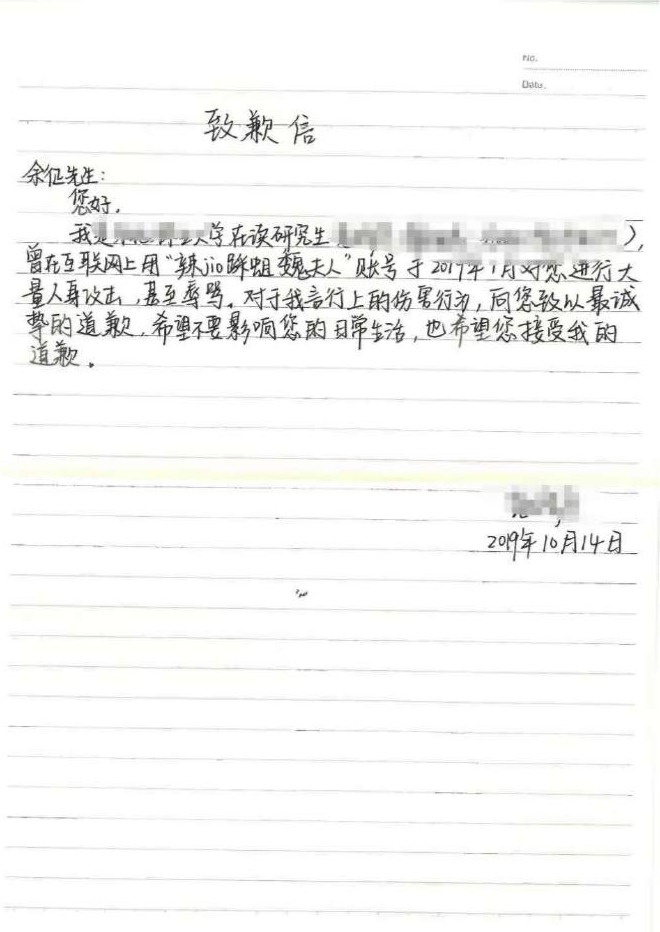 No.
Date.
致歉信
余征先生：
您好。
我是 大学在读研究生 ），
曾在互联网上用“辣jio踩蛆魏夫人”账号于2019年1月对您进行大
量人身攻击，甚至辱骂。对于我言行上的伤害行为，向您致以最诚
挚的道歉，希望不要影响您的日常生活，也希望您接受我的
道歉。
2019年10月14日